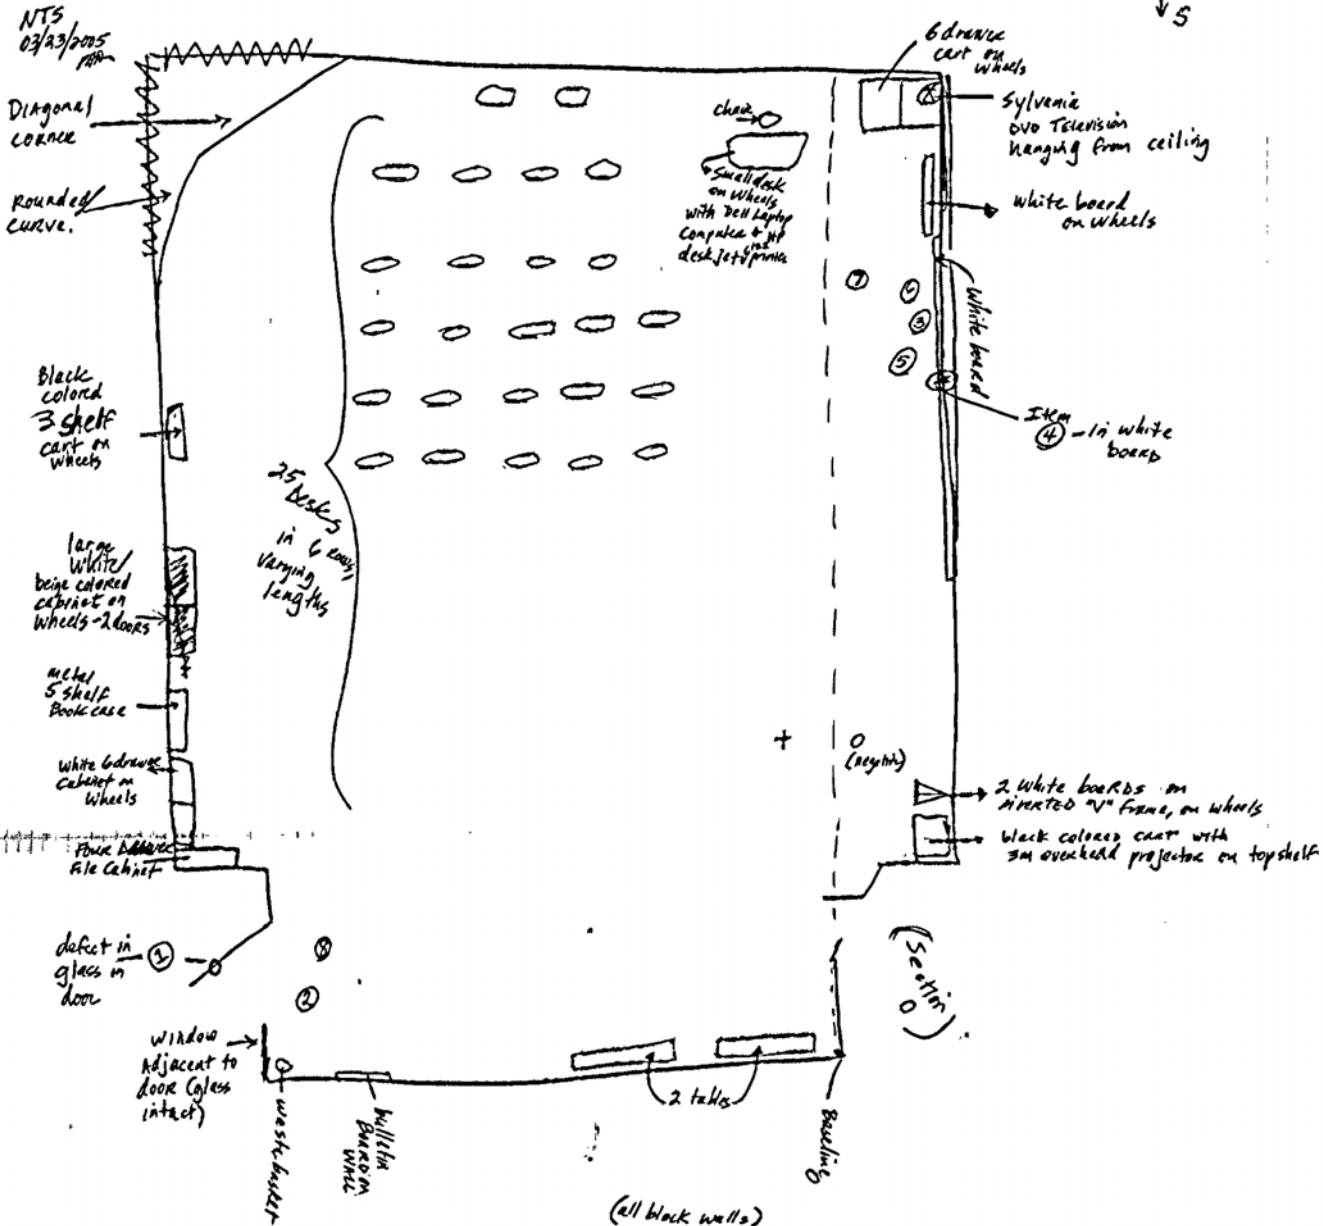 NTS
03/23/2005
↓ S
6 drawer
cart on
wheels
Sylvania
DVD Television
hanging from ceiling
Diagonal
corner
Rounded
curve.
chair
Small desk
on wheels
with Dell Laptop
Computer + HP
deskjet printer
white board
on wheels
7
6
3
5
White board
Item
4 - in white
board
Black
colored
3 shelf
cart on
wheels
25
Desks
in 6 rows,
varying
lengths
large
white/
beige colored
cabinet on
wheels - 2 doors
metal
5 shelf
Bookcase
White 6 drawer
cabinet on
wheels
Four Drawer
File Cabinet
+
O
(negative)
2 white boards on
inverted "V" frame, on wheels
black colored cart with
3m overhead projector on top shelf
(Section
O)
defect in
glass in
door
1
8
2
window
Adjacent to
door (glass
intact)
wastebasket
bulletin
Board on
wall
2 tables
Baseline
O
(all block walls)